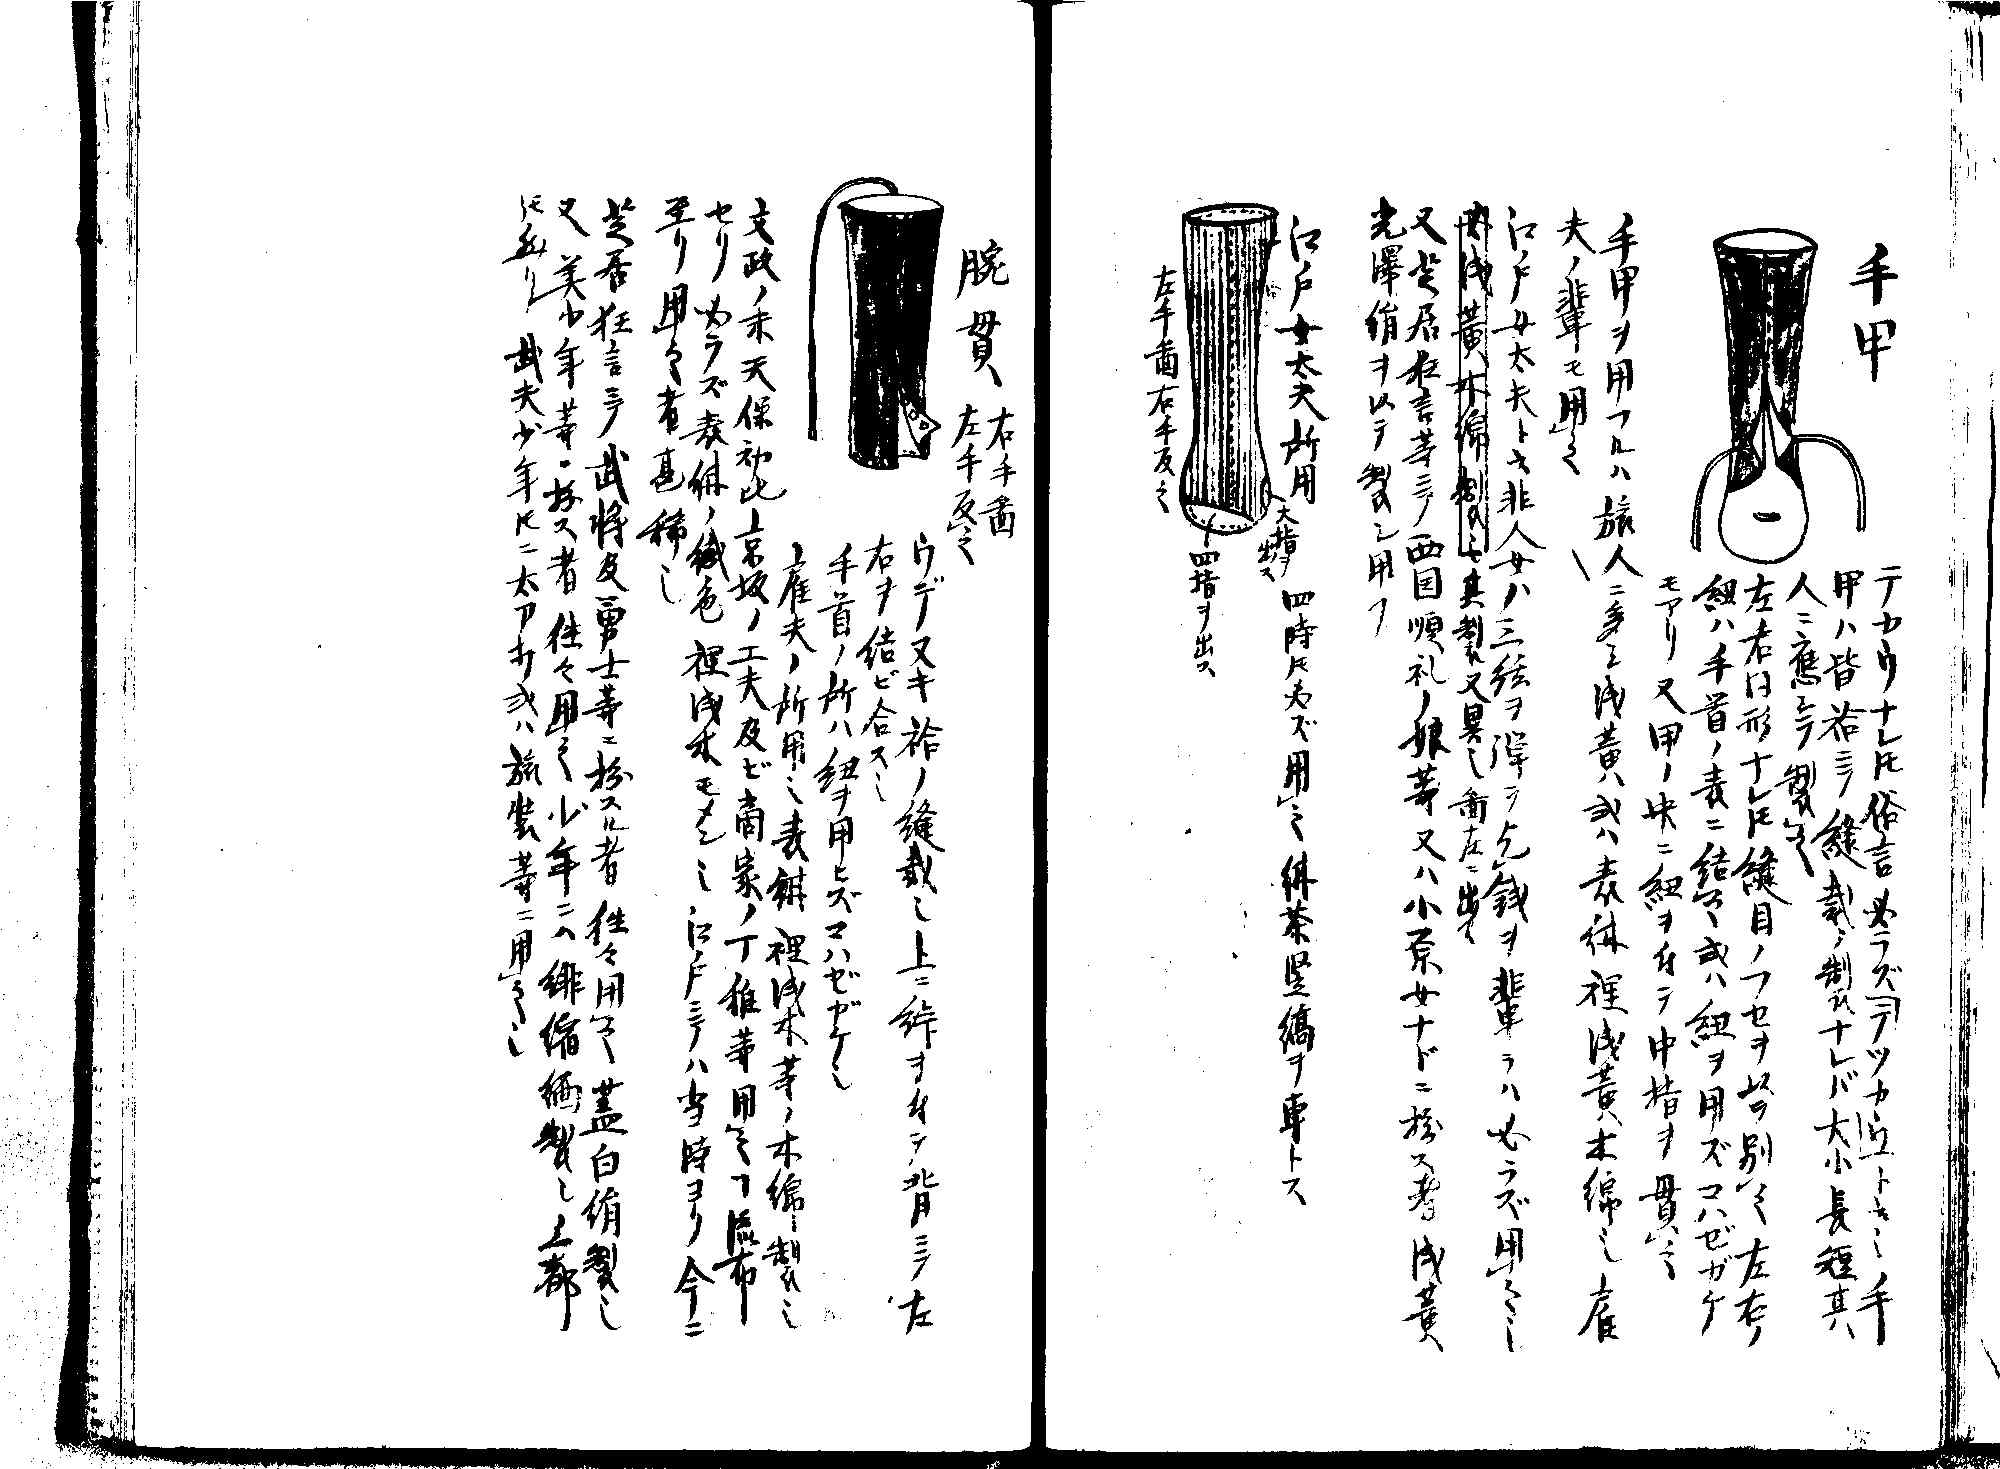 手甲
テカウナレ𪜈俗言必ラズテツカウト云也手
甲ハ皆袷ニテ縫裁ノ製ナレバ大小長短其
人ニ應ジテ製之
左右同形ナレ𪜈縫目ノフセヲ以テ別之左右ノ
紐ハ手首ノ表ニ結之或ハ紐ヲ用ズコハゼガケ
モアリ又甲ノ央ニ紐ヲ付テ中指ヲ貫之
手甲ヲ用フルハ旅人ニ多シ浅黄或ハ表紺裡浅黄木綿也雇
夫ノ輩モ用之
江戸女太夫ト云非人女ハ三絃ヲ弾テ乞銭ヲ輩ラハ必ラズ用之也
必浅黄木綿製也其製又異也圖左ニ出ス
又芝居狂言等ニテ西国順礼ノ娘等又ハ小原女ナドニ扮ス者浅黄
光澤絹ヲ以テ製シ用フ
江戸女太夫所用
四時𪜈必ズ用之紺茶竪縞ヲ專トス
大指ヲ出ス
四指ヲ出ス
左手圖右手反之
腕貫
右手圖
左手反之
ウデヌキ袷ノ縫裁也上ニ紐ヲ付テ背ニテ左
右ヲ結ビ合ス也
手首ノ所ハ紐ヲ用ヒズコハゼガケ也
雇夫ノ所用也表紺裡浅木等ノ木綿製也
文政ノ末天保初比上京坂ノ工夫及ビ商家ノ丁稚等用之テ流布
セリ必ラズ表紺ノ絨色裡浅木モメン也江戸ニテハ当時ヨリ今ニ
至リ用之者甚稀也
芝居狂言ニテ武将及勇士等ニ扮スル者往々用之蓋白絹製也
又美少年等ニ扮ス者往々用之少年ニハ緋縮緬製也三都
𪜈然リ武夫少年𪜈ニ太刀打或ハ旅装等ニ用之也